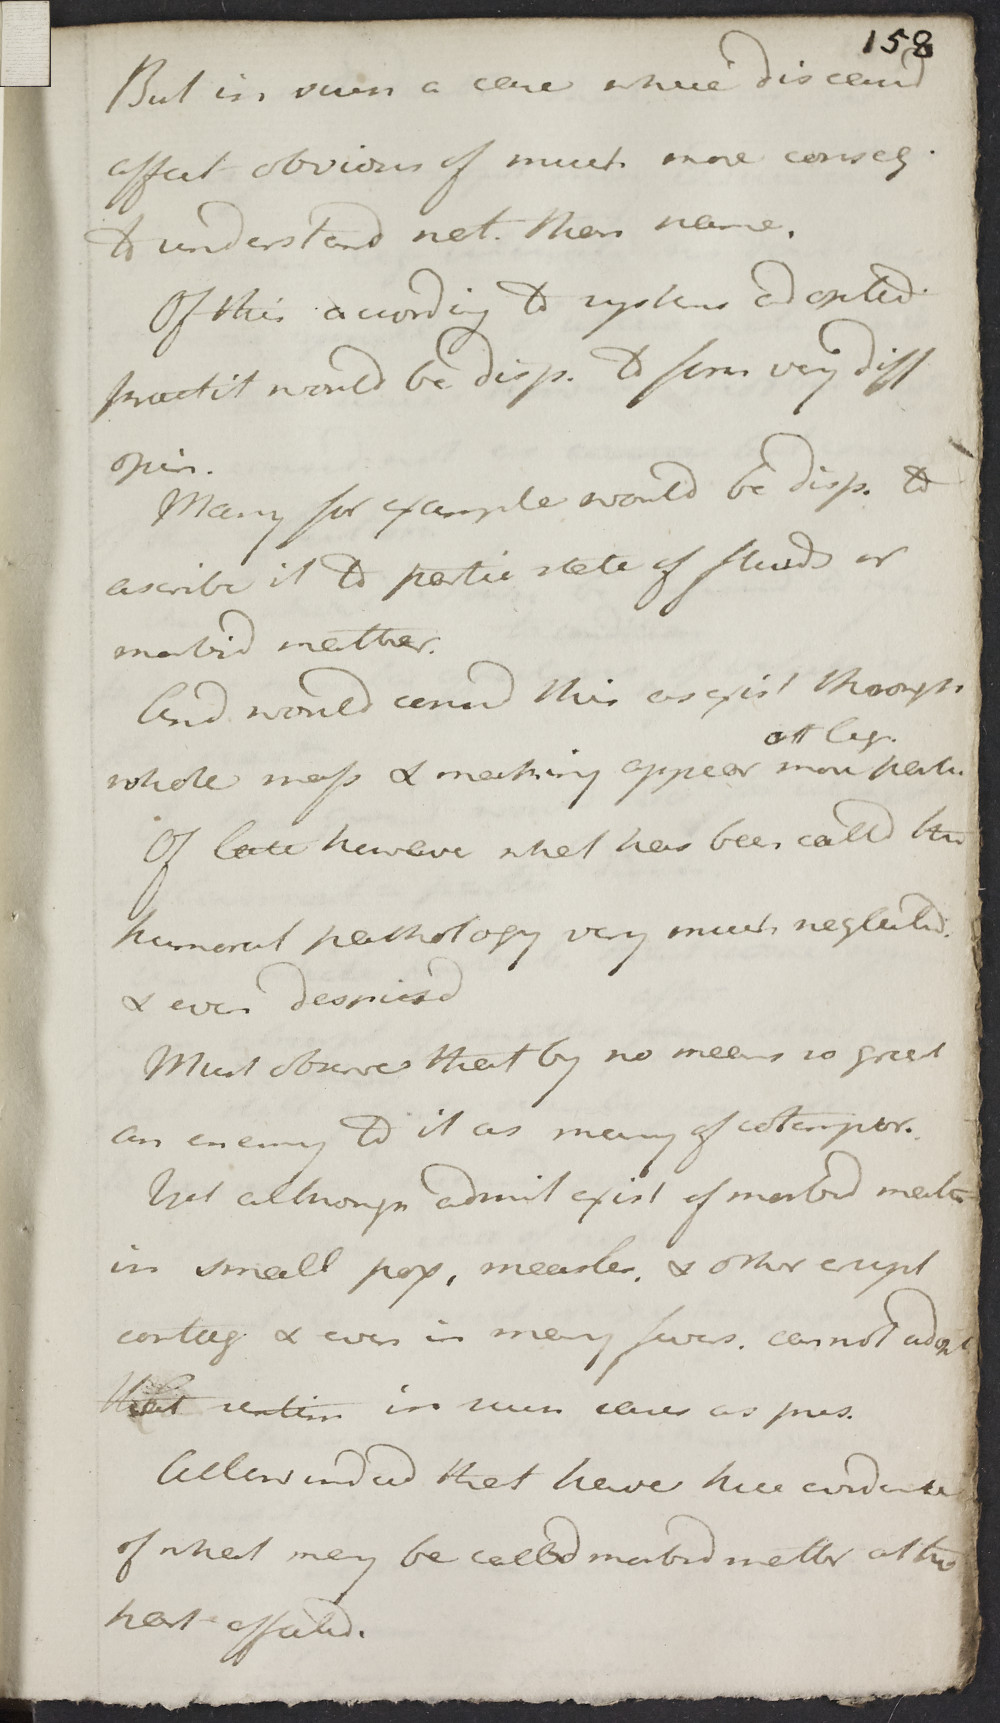 158
But in such a case where diseased
affect obvious of much more conseq.
to understand nat. than name.
Of this according to systems adopted
practit would be disp. to form very diff
opin.
Many for example would be disp. to
ascribe it to partic state of fluids or
morbid matter.
And would consid this as exist through
whole mass & making appear more partic.
att leg.
Of late however what has been called the
humoral pathology very much neglected.
& even despised
Must observe that by no means so great
an enemy to it as many of cotempor.
Yet although admit exist of morbid matter
in small pox, measles, & other erupt
contag & even in many fevers. cannot adopt
that in such cases as pres.
Allow indeed that have here evidence
of what may be called morbid matter at the
part affected.